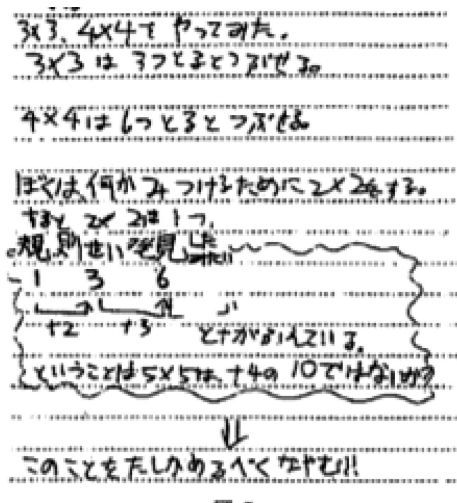 3×3、4×4でやってみた。
3×3は3つとるとつぶせる。
4×4は6つとるとつぶせる
ぼくは、何かみつけるために2×2をする。
すると2×2は1つ。
規則せい発見した
1 3 6
+2 +3
と+がふえている。
ということは5×5は、+4の10ではないか?
⇓
このことをたしかめるべく なやむ!!